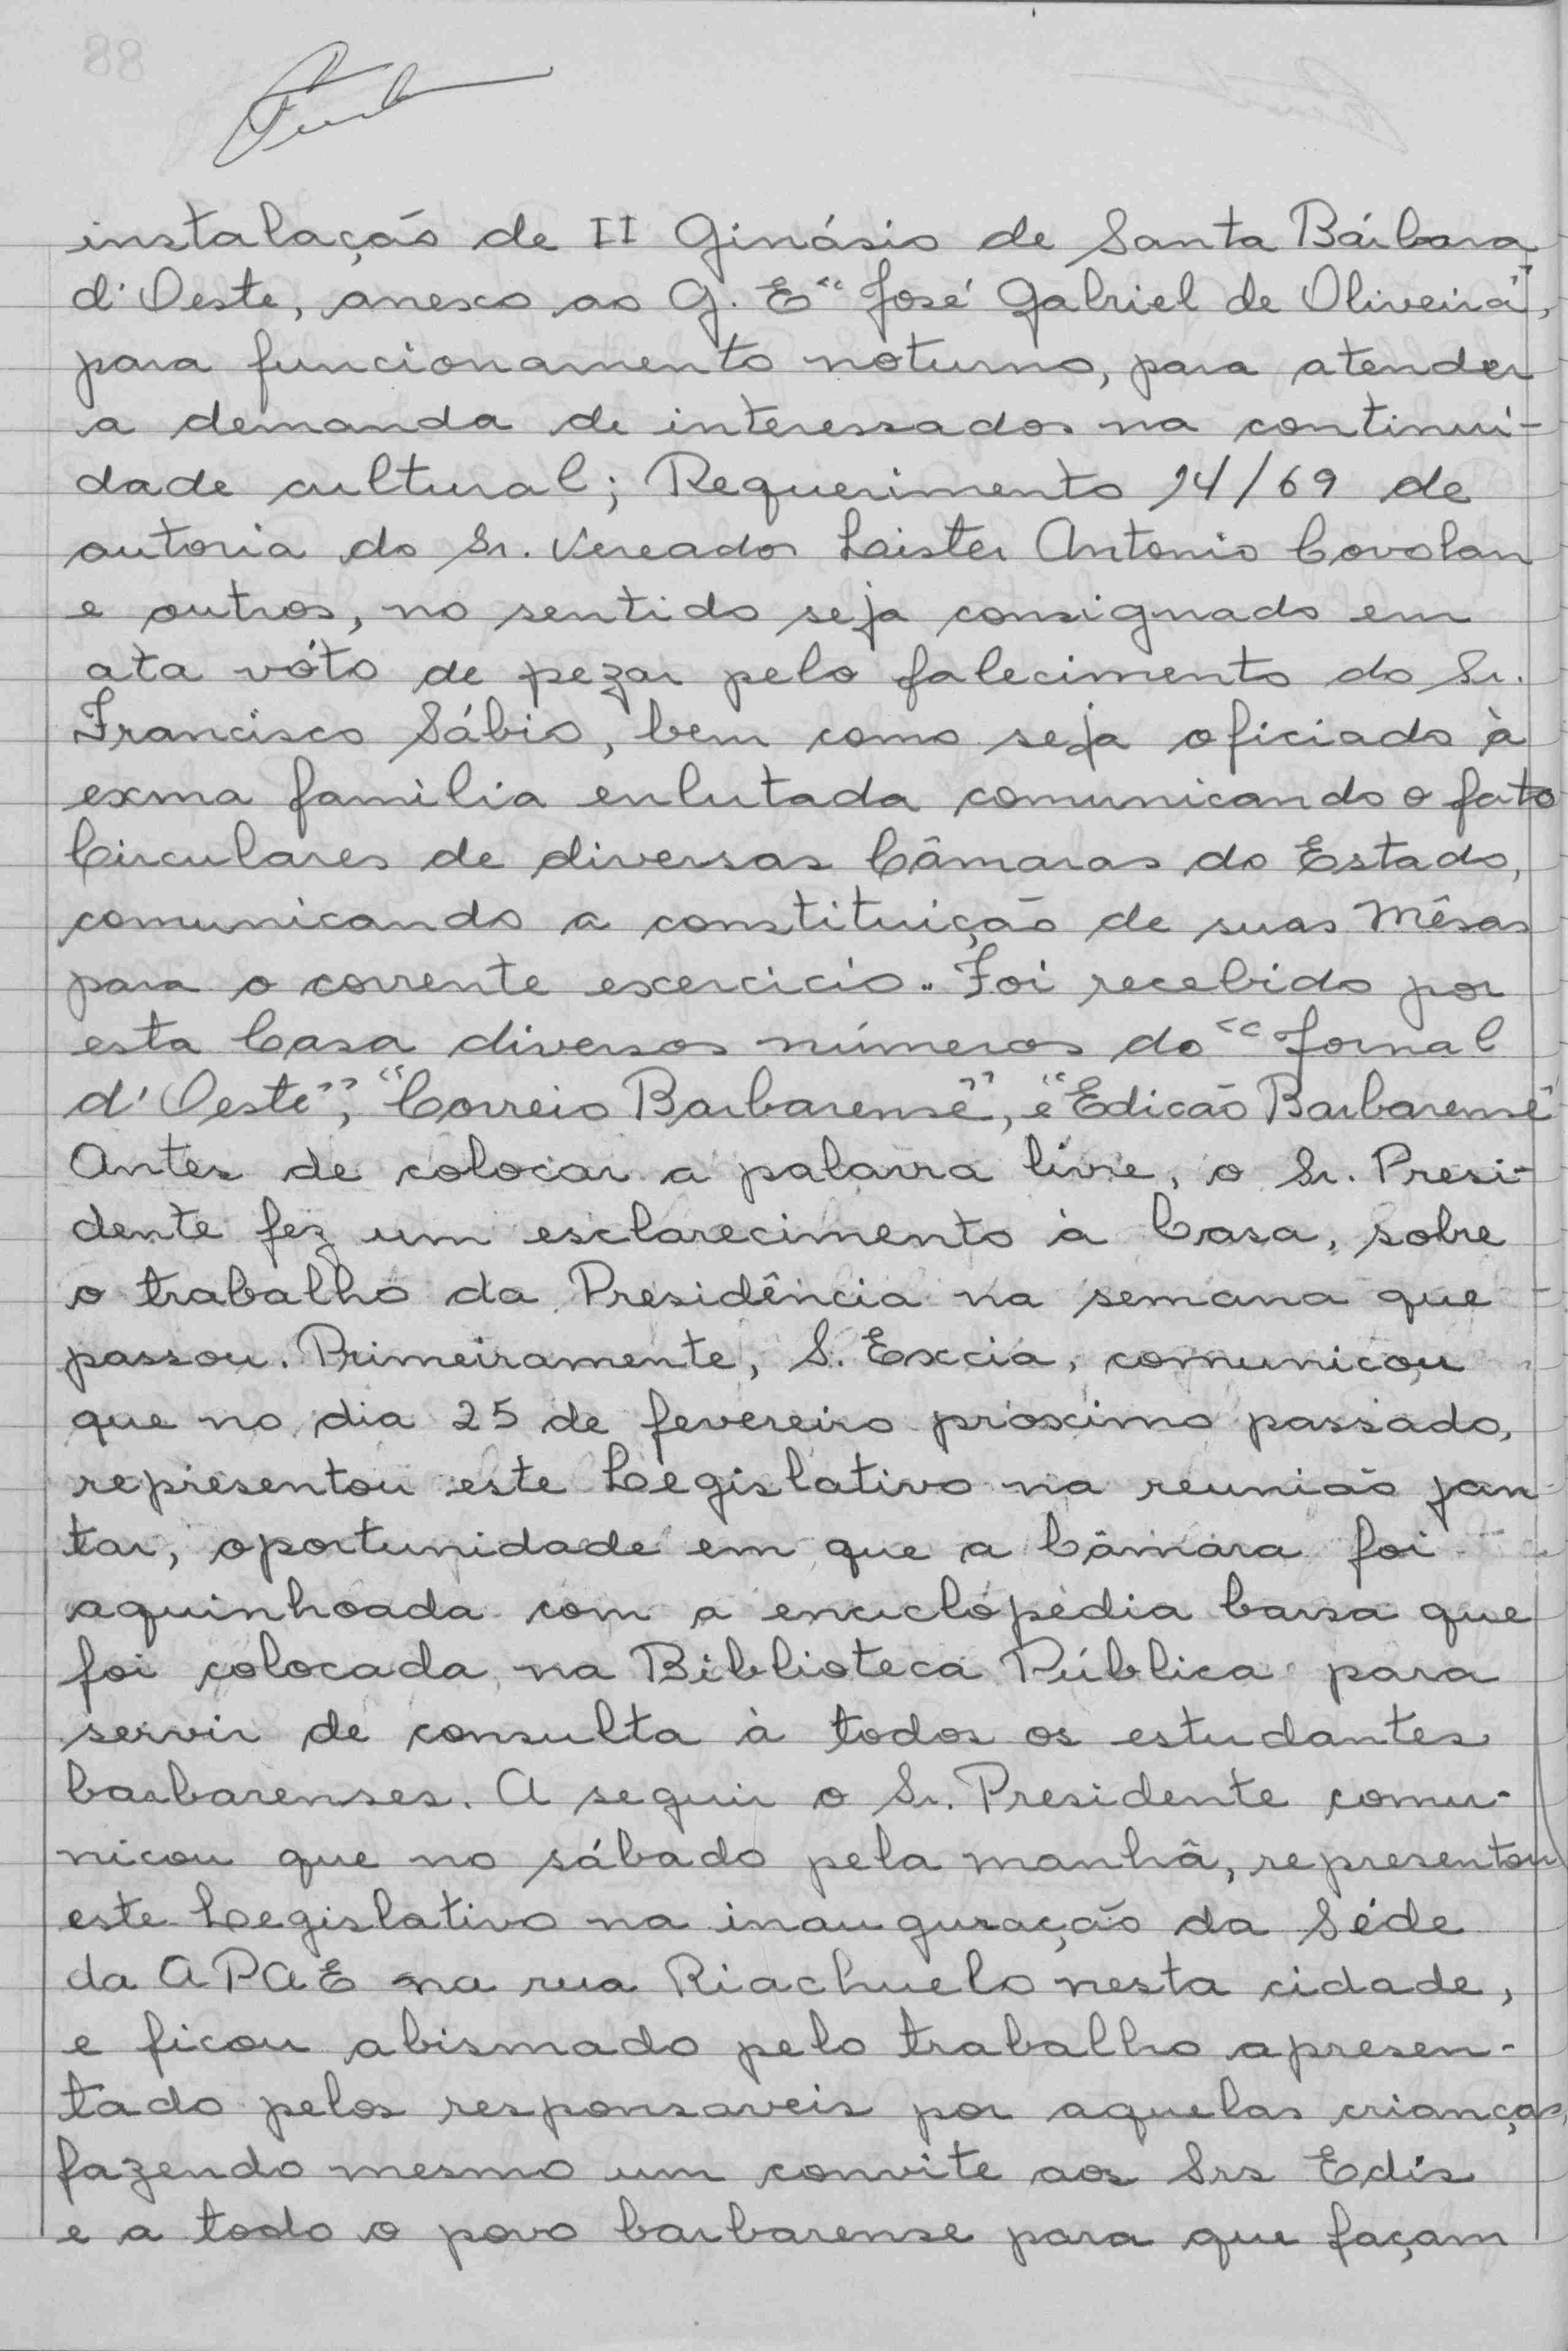 instalação de II Ginásio de Santa Bárbara
d'Oeste, anexo ao G. E "José Gabriel de Oliveira",
para funcionamento noturno, para atender
a demanda de interessados na continui-
dade cultural; Requerimento 14/69 de
autoria do Sr. Vereador Laister Antonio Covolan
e outros, no sentido seja consignado em
ata vóto de pezar pelo falecimento do Sr.
Francisco Sábio, bem como seja oficiado à
exma familia enlutada comunicando o fato
Circulares de diversas Câmaras do Estado,
comunicando a constituição de suas Mêsas
para o corrente exercicio. Foi recebido por
esta Casa diversos números do "Jornal
d'Oeste", "Correio Barbarense", e "Edicão Barbarense"
Antes de colocar a palavra livre, o Sr. Presi-
dente fez um esclarecimento à Casa, sobre
o trabalho da Presidência na semana que
passou. Primeiramente, S. Excia, comunicou
que no dia 25 de fevereiro próximo passado,
representou este Legislativo na reunião jan
tar, oportunidade em que a Câmara foi
aquinhoada com a enciclopédia barsa que
foi colocada na Biblioteca Pública para
servir de consulta à todos os estudantes
barbarenses. A seguir o Sr. Presidente comu-
nicou que no sábado pela manhã, representou
este Legislativo na inauguração da Séde
da APAE na rua Riachuelo nesta cidade,
e ficou abismado pelo trabalho apresen-
tado pelos responsaveis por aquelas crianças,
fazendo mesmo um convite aos Srs Edis
e a todo o povo barbarense para que façam